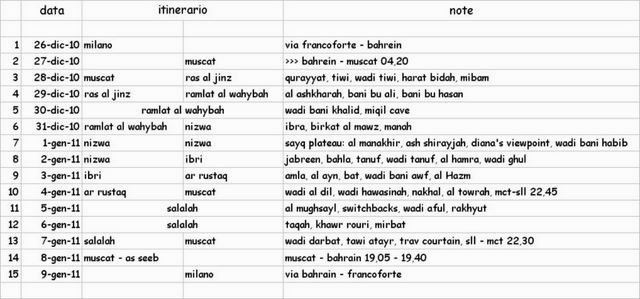 data itinerario note
1 26-dic-10 milano via francoforte - bahrein
2 27-dic-10 muscat >>> bahrein - muscat 04,20
3 28-dic-10 muscat ras al jinz qurayyat, tiwi, wadi tiwi, harat bidah, mibam
4 29-dic-10 ras al jinz ramlat al wahybah al ashkharah, bani bu ali, bani bu hasan
5 30-dic-10 ramlat al wahybah wadi bani khalid, miqil cave
6 31-dic-10 ramlat al wahybah nizwa ibra, birkat al mawz, manah
7 1-gen-11 nizwa nizwa sayq plateau: al manakhir, ash shirayjah, diana's viewpoint, wadi bani habib
8 2-gen-11 nizwa ibri jabreen, bahla, tanuf, wadi tanuf, al hamra, wadi ghul
9 3-gen-11 ibri ar rustaq amla, al ayn, bat, wadi bani awf, al Hazm
10 4-gen-11 ar rustaq muscat wadi al dil, wadi hawasinah, nakhal, al towrah, mct-sll 22,45
11 5-gen-11 salalah al mughsayl, switchbacks, wadi aful, rakhyut
12 6-gen-11 salalah taqah, khawr rouri, mirbat
13 7-gen-11 salalah muscat wadi darbat, tawi atayr, trav courtain, sll - mct 22,30
14 8-gen-11 muscat - as seeb muscat - bahrain 19,05 - 19,40
15 9-gen-11 milano via bahrain - francoforte